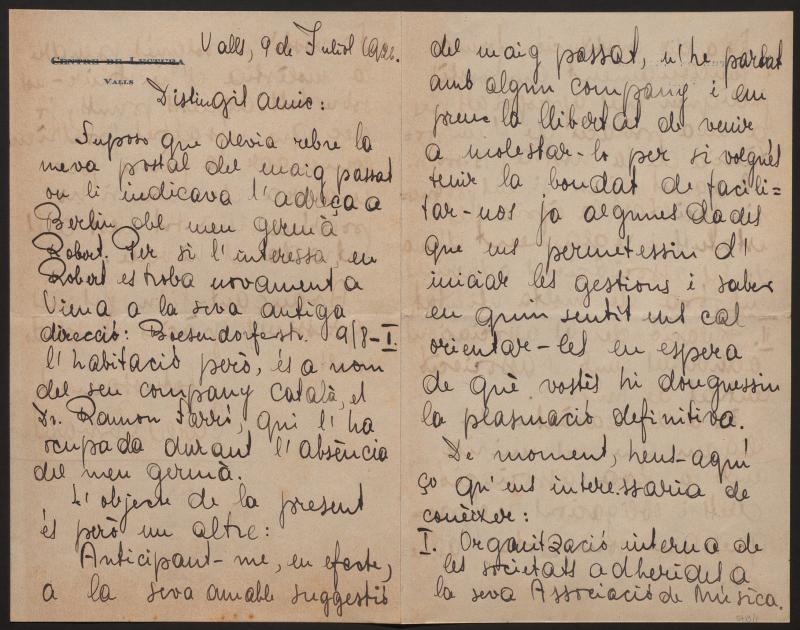 CENTRE DE LECTURA
VALLS
Valls, 9 de Juliol 1922.
Distingit amic:
Suposo que devia rebre la
meva postal del maig passat
on li indicava l'adreça a
Berlin del meu germà
Robert. Per si l'interessa, en
Robert es troba novament a
Viena a la seva antiga
direcció: Boesendorferstr. 9/8-I.
l'habitació però, és a nom
del seu company català, el
Dr. Ramon Sarró, qui l'ha
ocupada durant l'absència
del meu germà.
L'objecte de la present
és però un altre:
Anticipant-me, en efecte,
a la seva amable suggestió
del maig passat, n'he parlat
amb algun company i em
prenc la llibertat de venir
a molestar-lo per si volgués
tenir la bondat de facili=
tar-nos ja algunes dades
que ens permetessin d'
iniciar les gestions i saber
en quin sentit ens cal
orientar-les en espera
de què vostès hi donguessin
la plasmació definitiva.
De moment, heus-aquí
ço qu'ens interessaria de
conèixer:
I. Organització interna de
les societats adherides a
la seva Associació de Música.